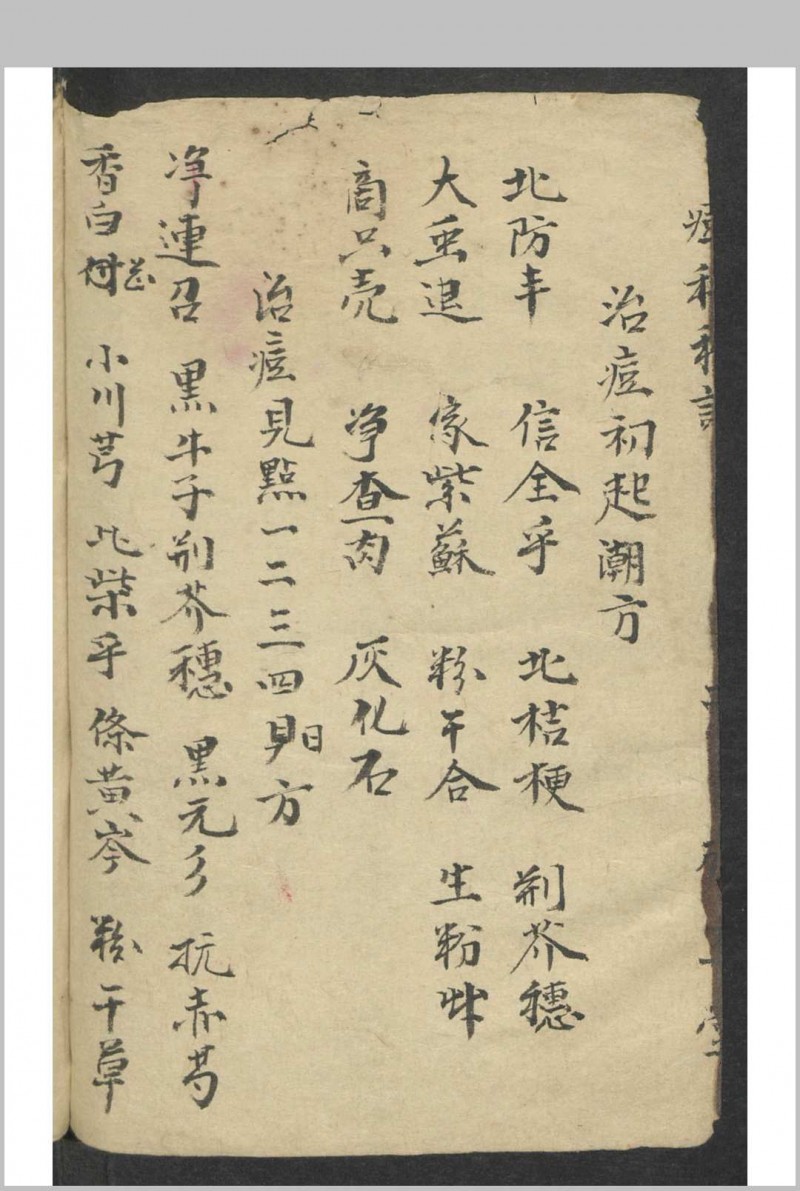 痘科秘訣
治痘初起潮方
北防丰 信全乎 北桔梗 荆芥穗
大虫退 家紫蘇 粉干合 生粉艸
商只壳 净查肉 灰化石
治痘見點一二三四日方
净連召 黒牛子 荆芥穗 黒元彡 杭赤芍
香白芷 小川芎 北柴乎 條黄岑 粉干草